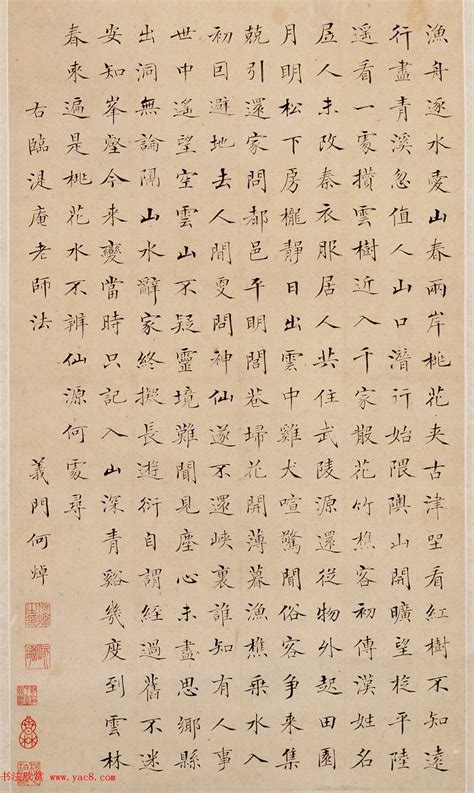 漁舟逐水愛山春兩岸桃花夾古津坐看紅樹不知遠
行盡青溪忽值人山口潛行始隈隩山開曠望旋平陸
遙看一處攢雲樹近入千家散花竹樵客初傳漢姓名
居人未改秦衣服居人共住武陵源還從物外起田園
月明松下房櫳靜日出雲中雞犬喧驚聞俗客爭來集
競引還家問都邑平明閭巷埽花開薄暮漁樵乘水入
初回避地去人間更問神仙遂不還峽裏誰知有人事
世中遙望空雲山不疑靈境難聞見塵心未盡思鄉縣
出洞無論隔山水辭家終擬長遊衍自謂經過舊不迷
安知峯壑今來變當時只記入山深青谿幾度到雲林
春來遍是桃花水不辨仙源何處尋
右臨湜庵老師法 義門何焯
书法欣赏 www.yac8.com